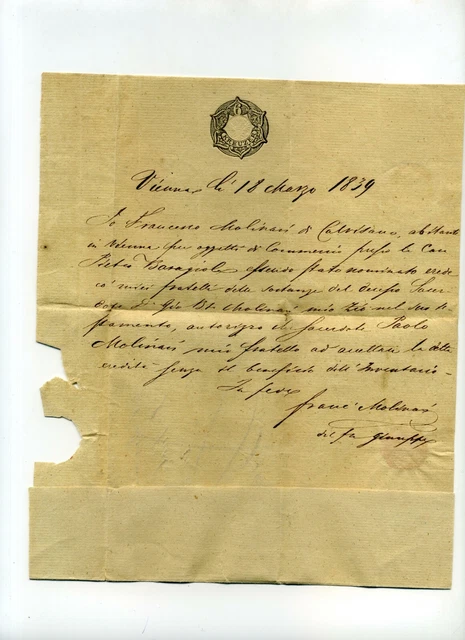 6
KREUZER
Vienna li 18 Marzo 1839
Io Francesco Molinari di Calvisano, abitante
in Vienna per oggetti di Commercio presso la Casa
Pietro Baragiola essendo stato nominato erede
co' miei fratelli della sostanza del Sacer
dote Dn Gio Bta Molinari mio Zio nel suo te
stamento, autorizzo il Sacerdote Paolo
Molinari mio fratello ad accettare la detta
eredità senza il beneficio dell'Inventario -
In fede
Franco Molinari
del fu Giuseppe